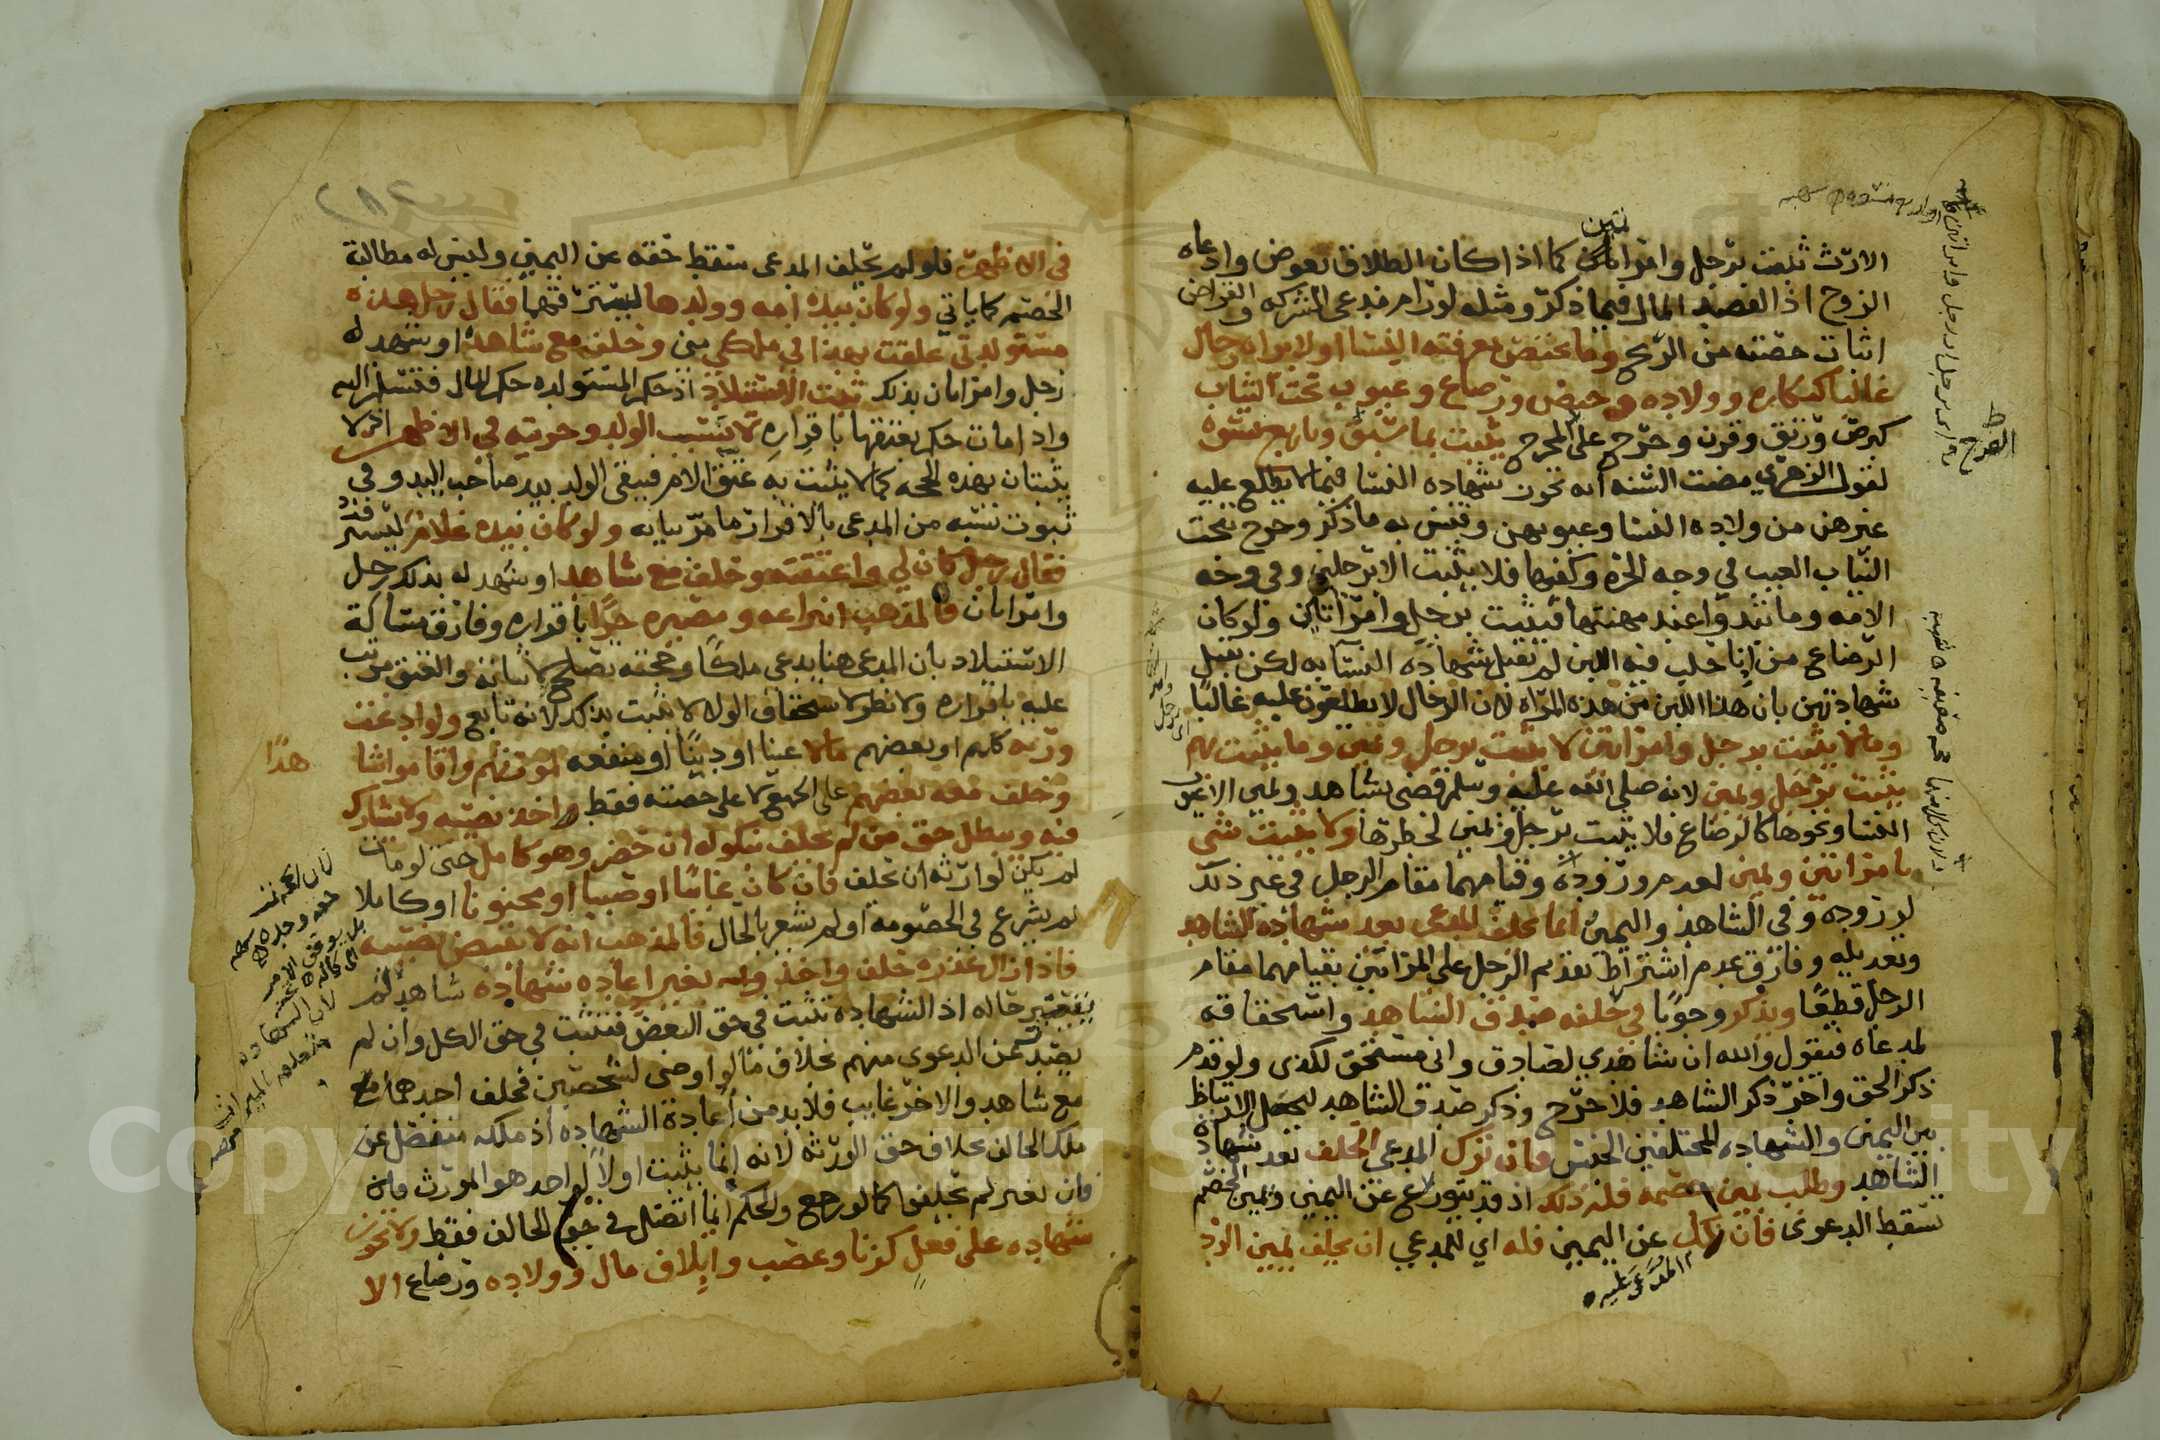 الارث ثبت برجل وامراتين كما اذا كان الطلاق بعوض وادعاه
الزوج اذ القصد المال فيما ذكر ومثله لو رام مدعي الشركه والقراض
اثبات حصته من الربح وما يختص بمعرفته النسا او لا يراه رجال
غالبا كبكاره وولاده وحيض ورضاع وعيوب تحت الثياب
كبرص ورتق وقرن وجرح على الفرج يثبت بما سبق وباربع نسوه
لقول الزهري مضت السنه انه تجوز شهاده النسا فيما لا يطلع عليه
غيرهن من ولاده النسا وعيوبهن وقيس به ما ذكر وخرج بتحت
الثياب العيب في وجه الحره وكفيها فلا يثبت الا برجلين وفي وجه
الامه وما تبدوا عند مهنتها فيثبت برجل وامراتين ولو كان
الرضاع من انا حلب فيه اللبن لم تقبل شهاده النسا به لكن تقبل
شهادتهن بان هذا اللبن من هذه المراه لان الرجال لا يطلعون عليه غالبا
وما لا يثبت برجل وامراتين لا يثبت برجل ويمين وما يثبت بهم
يثبت برجل ويمين لانه صلى الله عليه وسلم قضى بشاهد ويمين الا عيوب
النسا ونحوها كالرضاع فلا يثبت برجل ويمين لخطرها ولا يثبت شي
بامراتين ويمين لعدم وروده وقيامهما مقام الرجل في غير ذلك
لوروده وفي الشاهد واليمين انما يحلف المدعي بعد شهاده الشاهد
وتعديله وفارق عدم اشتراط تقديم الرجل على المراتين بقيامهما مقام
الرجل قطعا ويذكر وجوبا في حلفه صدق الشاهد واستحقاقه
لمدعاه فيقول والله ان شاهدي لصادق واني مستحق لكذى ولو قدم
ذكر الحق واخر ذكر الشاهد فلا حرج وذكر صدق الشاهد ليحصل الارتباط
بين اليمين والشهاده المختلفين الجنس فان ترك المدعي الحلف بعد شهادة
الشاهد وطلب يمين خصمه فله ذلك اذ قد يتورع عن اليمين ويمين الخصم
تسقط الدعوى فان نكل عن اليمين فله اي للمدعي ان يحلف يمين الرد
المدعى عليه
في الاظهر فلو لم يحلف المدعي سقط حقه عن اليمين وليس له مطالبة
الخصم كما ياتي ولو كان بيده امه وولدها ليسترقهما فقال رجل هذه
مستولدتي علقت بهذا في ملكي مني وحلف مع شاهد او شهد له
رجل وامراتان بذلك ثبت الاستيلاد اذ حكم المستولده حكم المال فتسلم اليه
واذا مات حكم بعتقها باقراره لا نسب الولد وحريته في الاظهر لا
يثبتان بهذه الحجه كما لا يثبت به عتق الام فيبقى الولد بيد صاحب اليد وفي
ثبوت نسبه من المدعي بالاقرار ما مر بيانه ولو كان بيده غلام ليسترقه
فقال رجل كان لي واعتقته وحلف مع شاهد او شهد له بذلك رجل
وامراتان فالمذهب انتزاعه ومصيره حرا باقراره وفارق مسالة
الاستيلاد بان المدعي هنا يدعي ملكا وحجته تصلح لاثباته والعتق مرتب
عليه باقراره ولا نظر لاستحقاق الولا لا يثبت بذلك لانه تابع ولو ادعت
ورثه كلهم او بعضهم مالا عينا او دينا او منفعه لمورثهم واقاموا شا
هدا
وحلف معه بعضهم على الجميع لا على حصته فقط اخذ نصيبه ولا يشارك
فيه ويبطل حق من لم يحلف بنكوله ان حضر وهو كامل حتى لو مات
لم يكن لوارثه ان يحلف فان كان غايبا او صبيا او مجنونا او كاملا
لم يشرع في الخصومة او لم يشعر بالحال فالمذهب انه لا يقبض نصيبه
فاذا زال عذره حلف واخذ وله بغير اعاده شهاده شاهد لم
يتغير حاله اذ الشهاده تثبت في حق البعض فتثبت في حق الكل وان لم
تصدر الدعوى منهم بخلاف ما لو اوصى لشخصين فحلف احدهما
مع شاهد والاخر غايب فلا بد من اعادة الشهاده اذ ملكه منفصل عن
ملك الحالف بخلاف حق الورثه لانه انما يثبت اولا لواحد هو المورث فان
فان تغير لم يحلف كما لو رجع والحكم انما اتصل في حق الحالف فقط ولا تجوز
شهاده على فعل كزنا وغصب واتلاف مال وولاده ورضاع الا